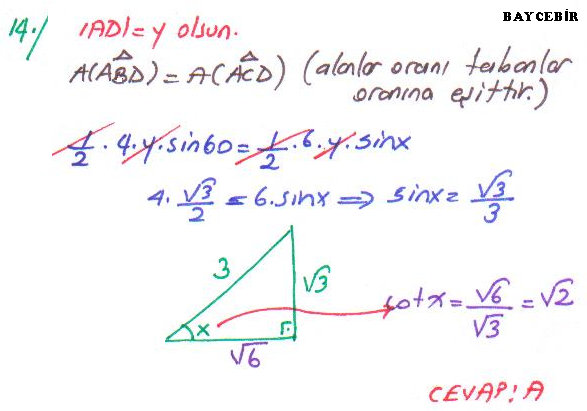 BAYCEBİR
14./ |AD|=y olsun.
A(ABD) = A(ACD) (alanlar oranı tabanlar oranına eşittir.)
1/2 · 4 · y · sin60 = 1/2 · 6 · y · sinx
4 · √3/2 = 6 · sinx ⟹ sinx = √3/3
3
√3
x
√6
cotx = √6/√3 = √2
CEVAP: A